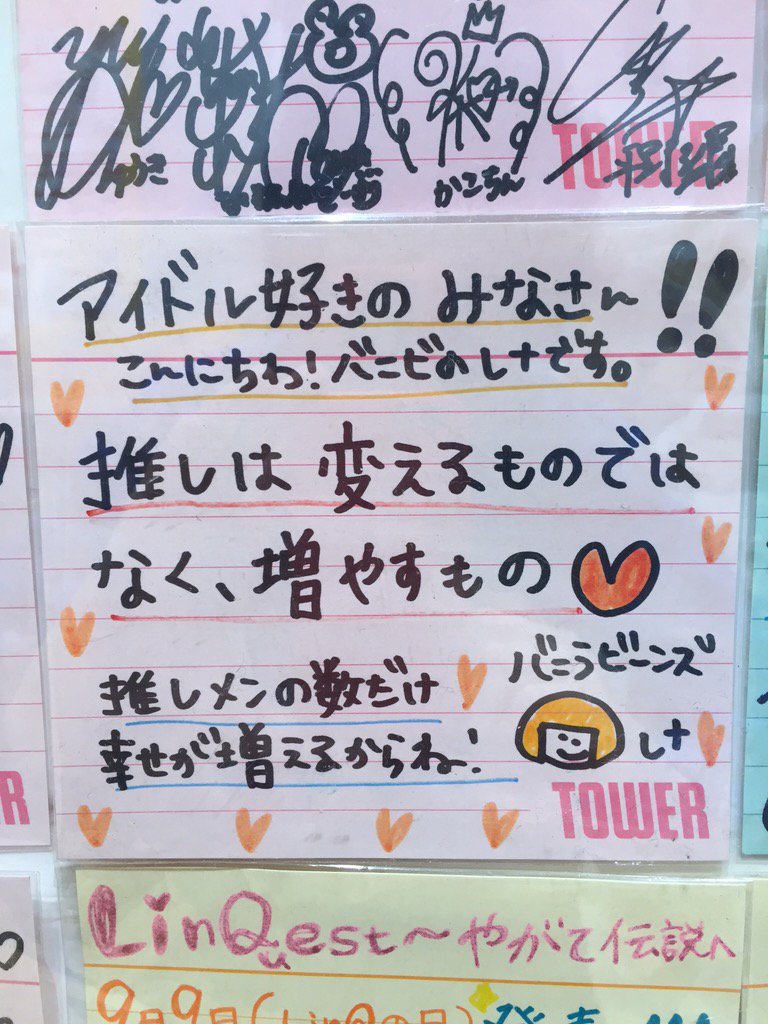 ゆき
かこちん
TOWER
アイドル好きの みなさん!!
こんにちわ!バニビのレナです。
推しは 変えるものでは
なく、増やすもの
推しメンの数だけ
幸せが増えるからね!
バニラビーンズ
レナ
TOWER
LinQuest~やがて伝説へ
9月9日(LinQの日)